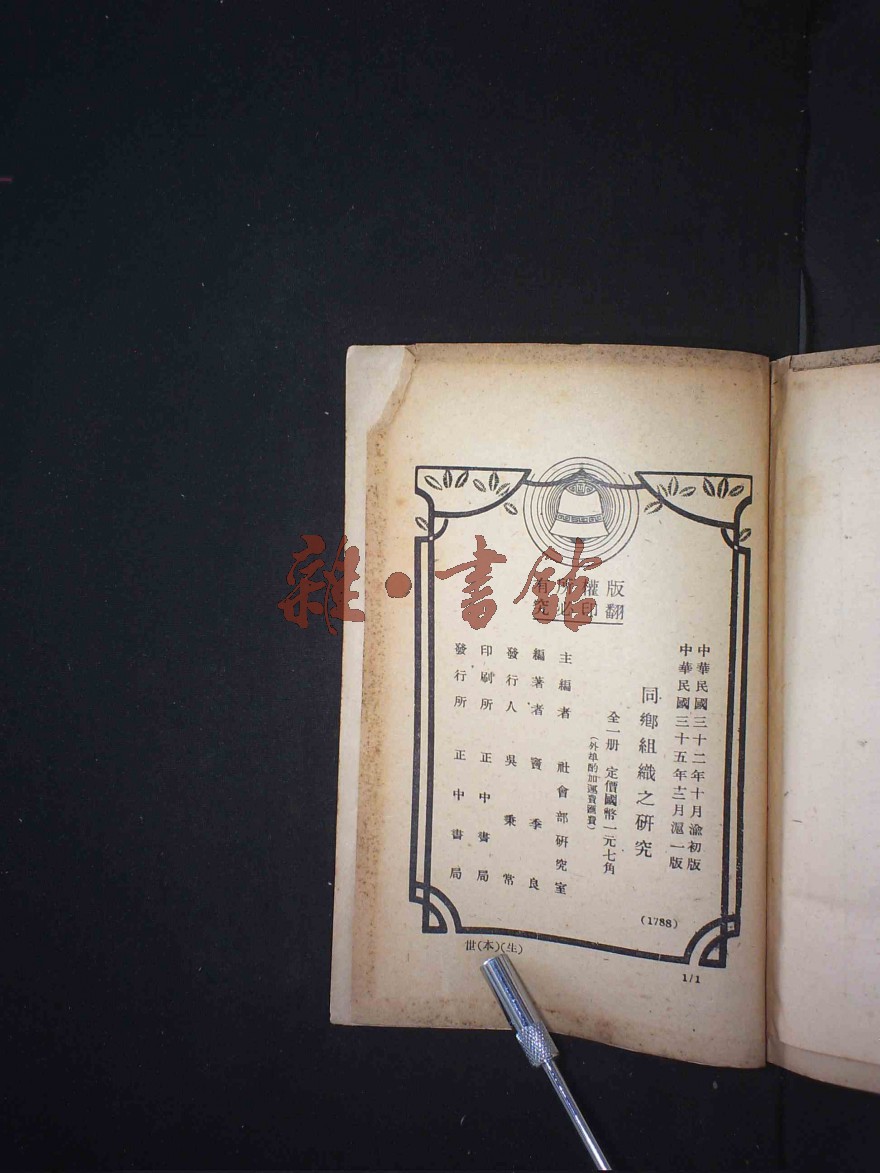 雜·書館
版權所有
翻印必究
中華民國三十二年十月渝初版
中華民國三十五年十二月滬一版
同鄉組織之研究
全一册 定價國幣一元七角
(外埠酌加運費匯費)
主編者 社會部研究室
編著者 竇季良
發行人 吳秉常
印刷所 正中書局
發行所 正中書局
(1788)
世(本)(生)
1/1